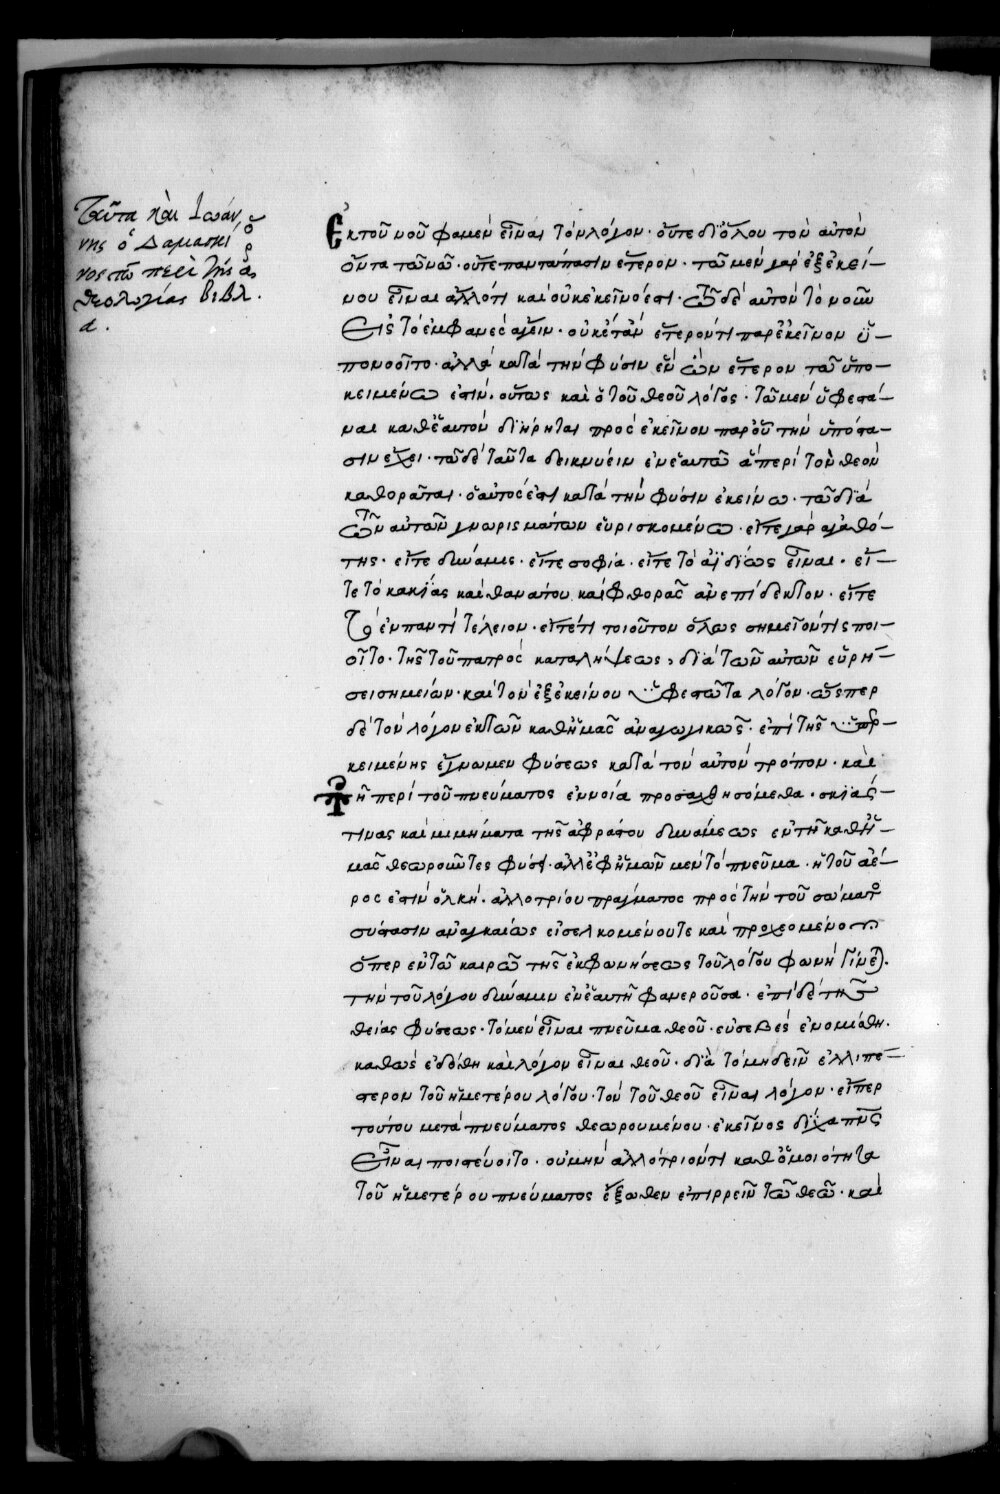 Ταῦτα καὶ Ἰωάν
νης ὁ Δαμασκη
νος τῶ περὶ τῆς ὀρ
θεολογίας βιβλ.
α.
Ἐκ τοῦ νοῦ φαμεν εἶναι τὸν λόγον· οὔτε δι ὅλου τὸν αὐτὸν
ὄντα τῶ νῶ· οὔτε παντάπασιν ἕτερον· τῶ μὲν γὰρ ἐξ ἐκεί-
νου εἶναι ἄλλό τι καὶ οὐκ ἐκεῖνό ἐστι· τῶ δὲ αὐτὸν τὸν νοῦν
εἰς τὸ ἐμφανὲς ἄγειν· οὐκέτ ἂν ἕτερόν τι παρ ἐκεῖνον ὑ-
πονοοῖτο· ἀλλὰ κατὰ τὴν φύσιν ἓν ὢν ἕτερον τῶ ὑπο-
κειμένω ἐστίν· οὕτως καὶ ὁ τοῦ θεοῦ λόγος· τῶ μὲν ὑφεστά-
ναι καθ ἑαυτὸν διήρηται πρὸς ἐκεῖνον παρ οὗ τὴν ὑπόστα-
σιν ἔχει· τῶ δὲ ταῦτα δεικνύειν ἐν ἑαυτῶ ἃ περὶ τὸν θεὸν
καθορᾶται· ὁ αὐτός ἐστι κατὰ τὴν φύσιν ἐκείνω· τῶ διὰ
τῶν αὐτῶν γνωρισμάτων εὑρισκομένω· εἴτε γὰρ ἀγαθό-
της· εἴτε δύναμις· εἴτε σοφία· εἴτε τὸ ἀϊδίως εἶναι· εἴ-
τε τὸ κακίας καὶ θανάτου καὶ φθορᾶς ἀνεπίδεκτον· εἴτε
τὸ ἐν παντὶ τέλειον· εἴτέ τι τοιοῦτον ὅλως σημεῖόν τις ποι-
οῖτο· τῆς τοῦ πατρὸς καταλήψεως, διὰ τῶν αὐτῶν εὑρή-
σει σημείων· καὶ τὸν ἐξ ἐκείνου ὑφεστῶτα λόγον· ὥσπερ
δὲ τὸν λόγον ἐκ τῶν καθ ἡμᾶς ἀναγωγικῶς· ἐπὶ τῆς ὑπερ-
κειμένης ἔγνωμεν φύσεως κατὰ τὸν αὐτὸν τρόπον· καὶ
τῆ περὶ τοῦ πνεύματος ἐννοία προσαχθησόμεθα· σκιάς-
τινας καὶ μιμήματα τῆς ἀφράστου δυνάμεως ἐν τῆ καθ ἡ-
μᾶς θεωροῦντες φύσει· ἀλλ ἐφ ἡμῶν μὲν τὸ πνεῦμα· ἡ τοῦ ἀέ-
ρος ἐστὶν ὁλκή· ἀλλοτρίου πράγματος πρὸς τὴν τοῦ σώματος
σύστασιν ἀναγκαίως εἰσελκομένου τε καὶ προχεομένου
ὅπερ ἐν τῶ καιρῶ τῆς ἐκφωνήσεως τοῦ λόγου φωνὴ γίνεται·
τὴν τοῦ λόγου δύναμιν ἐν ἑαυτῆ φανεροῦσα· ἐπὶ δὲ τῆς
θείας φύσεως· τὸ μὲν εἶναι πνεῦμα θεοῦ· εὐσεβὲς ἐνομίσθη·
καθὼς ἐδόθη καὶ λόγον εἶναι θεοῦ· διὰ τὸ μὴ δεῖν ἐλλιπέ-
στερον τοῦ ἡμετέρου λόγου· τὸν τοῦ θεοῦ εἶναι λόγον· εἴπερ
τούτου μετὰ πνεύματος θεωρουμένου· ἐκεῖνος δίχα πνς
εἶναι πιστεύοιτο· οὐ μὴν ἀλλότριόν τι καθ ὁμοιότητα
τοῦ ἡμετέρου πνεύματος ἔξωθεν ἐπιρρεῖν τῶ θεῶ· καὶ